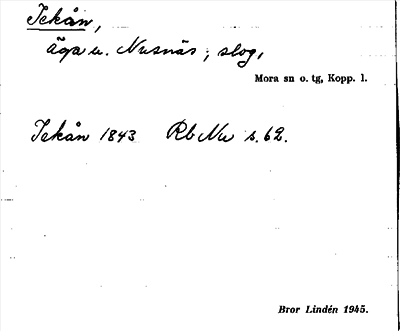 Jekån,
äga u. Nusnäs; slog,
Mora sn o. tg, Kopp. l.
Jekån 1843 Rb Nu s. 62.
Bror Lindén 1945.